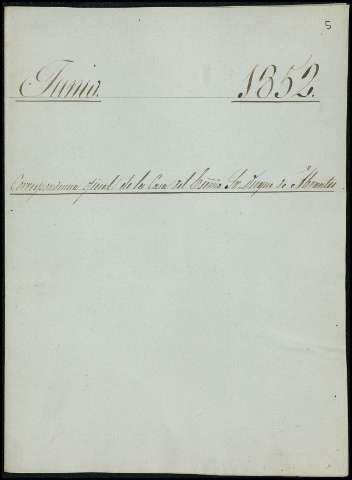 5
Junio. 1852.
Correspondencia oficial de la Casa del Exmo. Sr. Duque de Abrantes